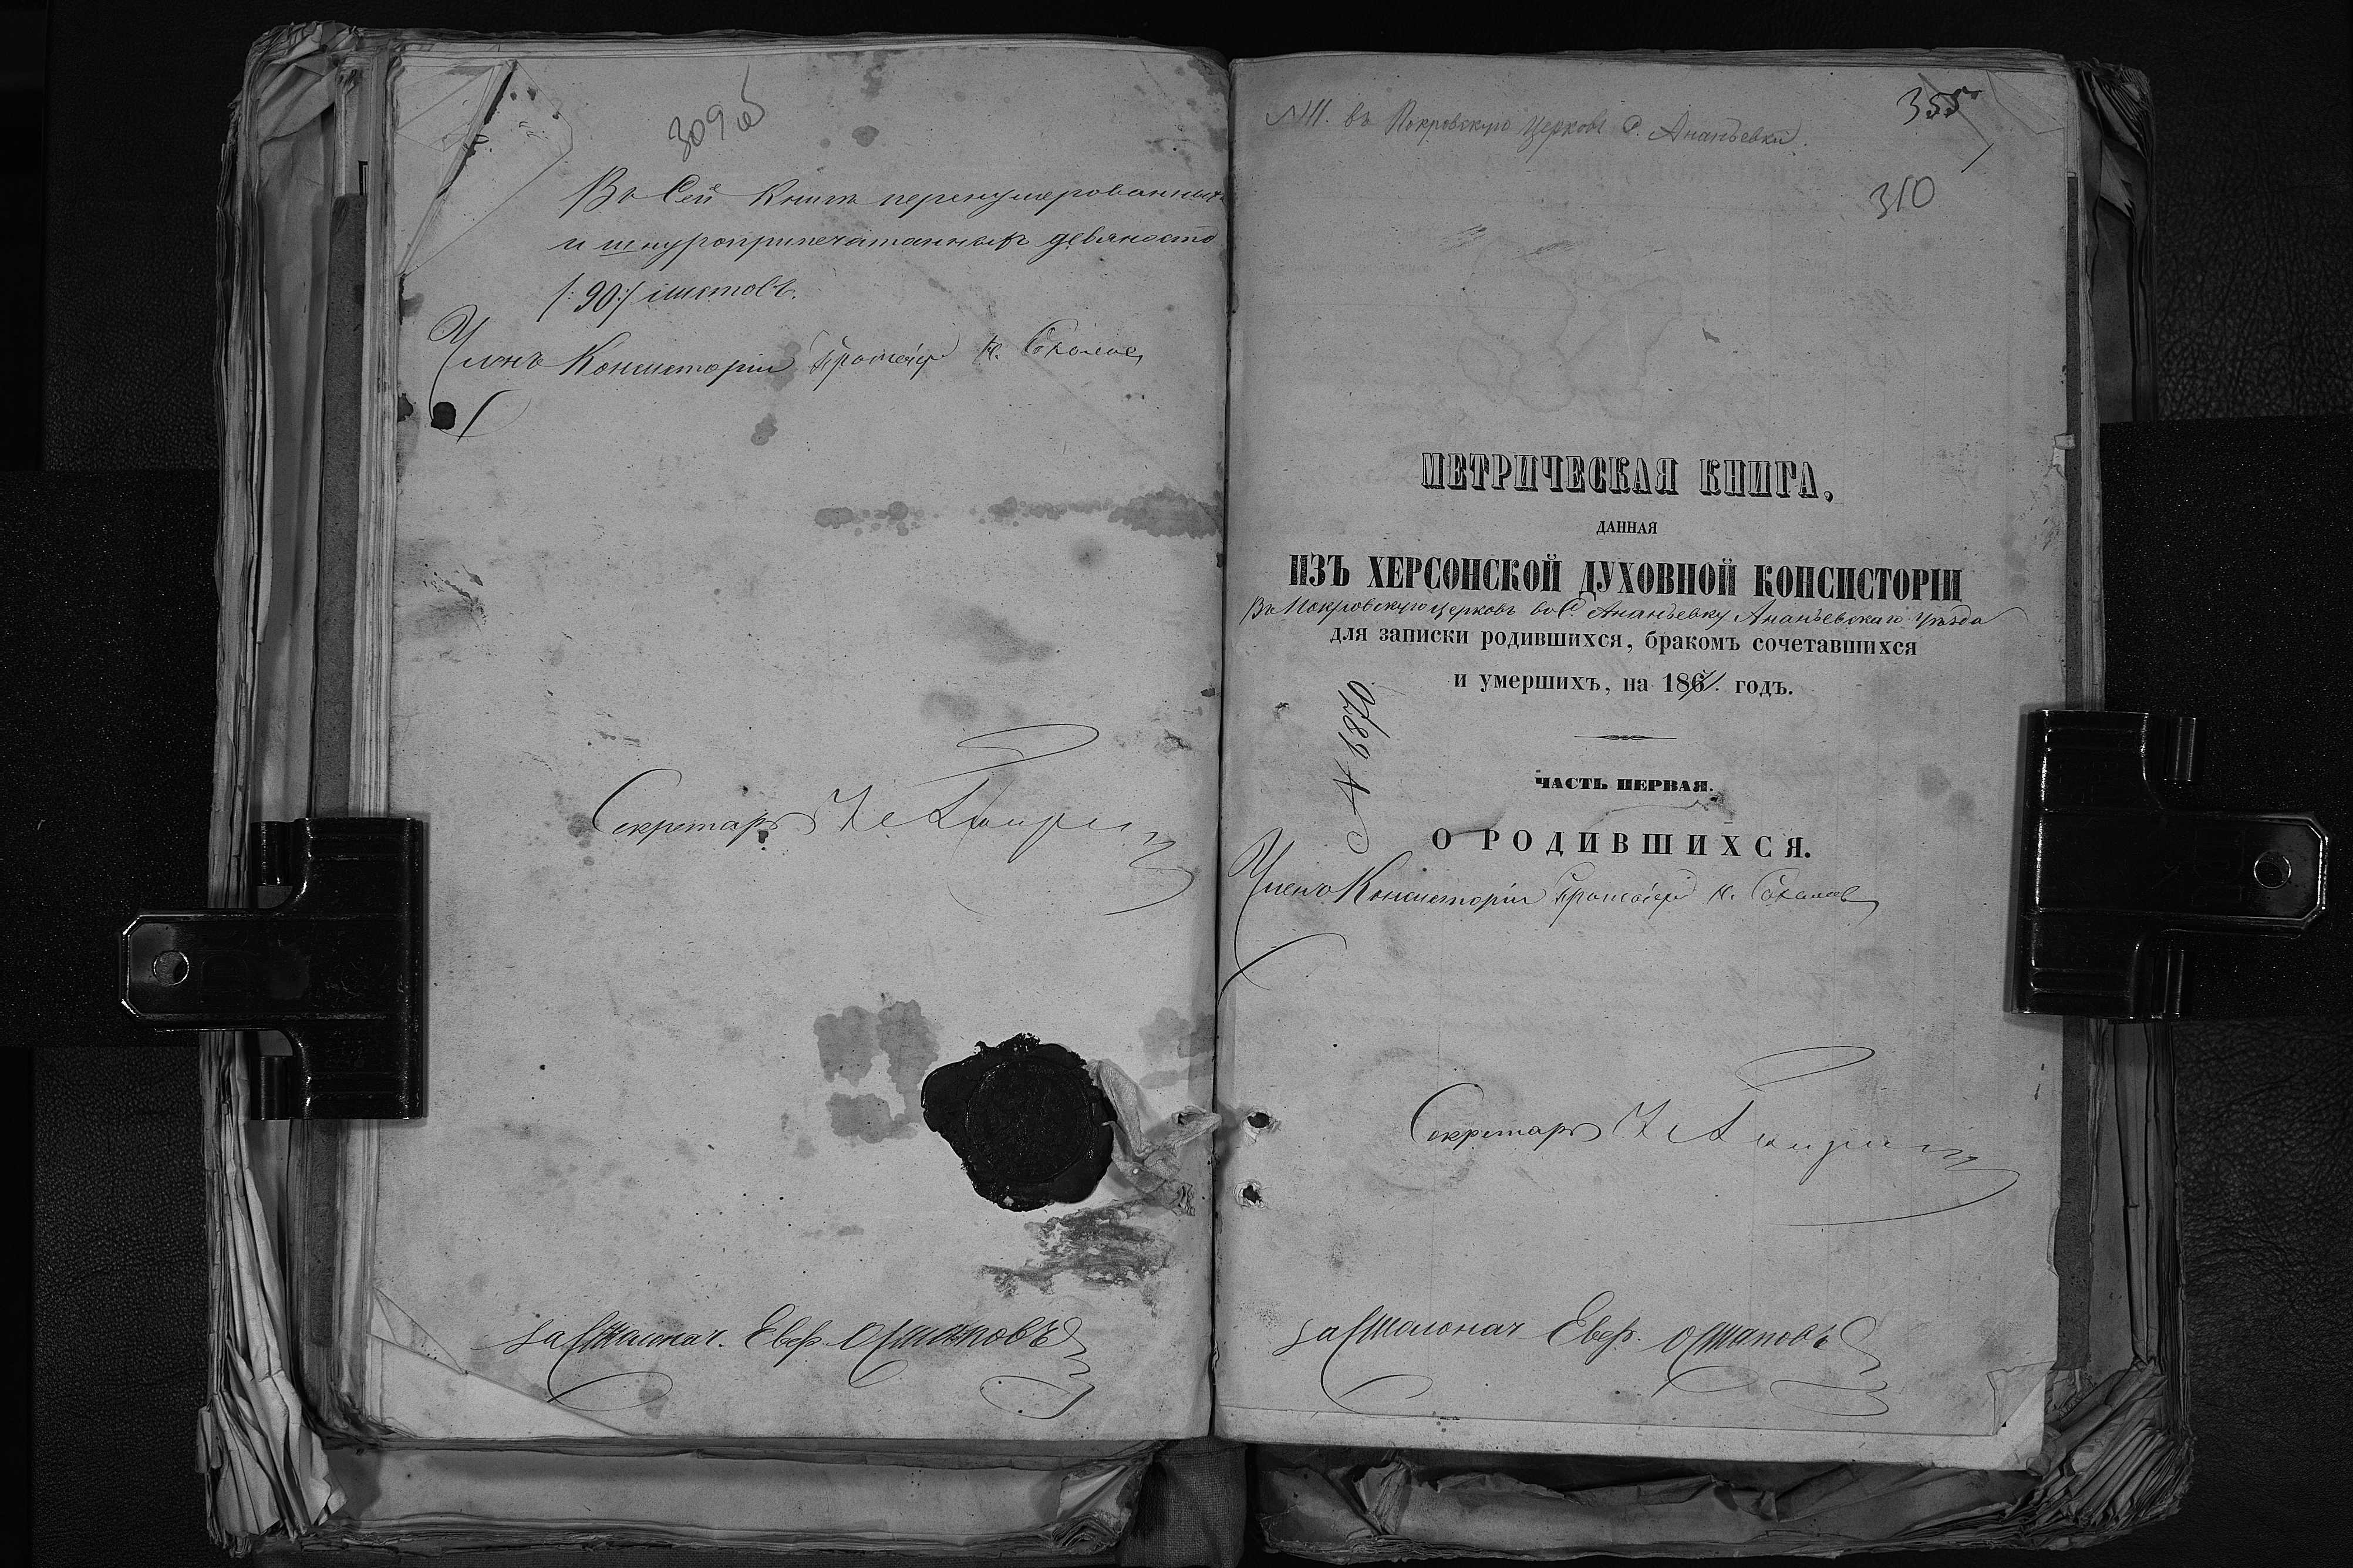 309об
Въ Сей Книгѣ перенумерованныхъ
и шнуроприпечатанныхъ девяносто
/:90:/ листовъ.
Членъ Консисторіи Протоіерей Н. Соколовъ
Секретарь
за Столонач. Евф. Остаповъ
№11. въ Покровскую Церковь С. Ананьевки.
355
310
МЕТРИЧЕСКАЯ КНИГА,
ДАННАЯ
ИЗЪ ХЕРСОНСКОЙ ДУХОВНОЙ КОНСИСТОРІИ
Въ Покровскую церковь во С. Ананьевку Ананьевскаго Уѣзда
для записки родившихся, бракомъ сочетавшихся
и умершихъ, на 1861. годъ.
№ 1870
ЧАСТЬ ПЕРВАЯ.
О РОДИВШИХСЯ.
Членъ Консисторіи Протоіерей Н. Соколовъ
Секретарь
за Столонач Евф. Остаповъ